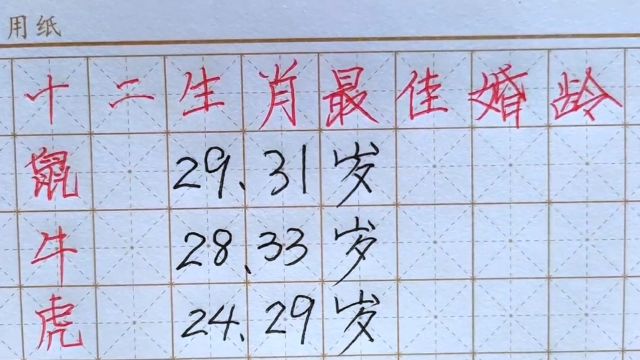 用纸
十二生肖最佳婚龄
鼠 29、31岁
牛 28、33岁
虎 24、29岁